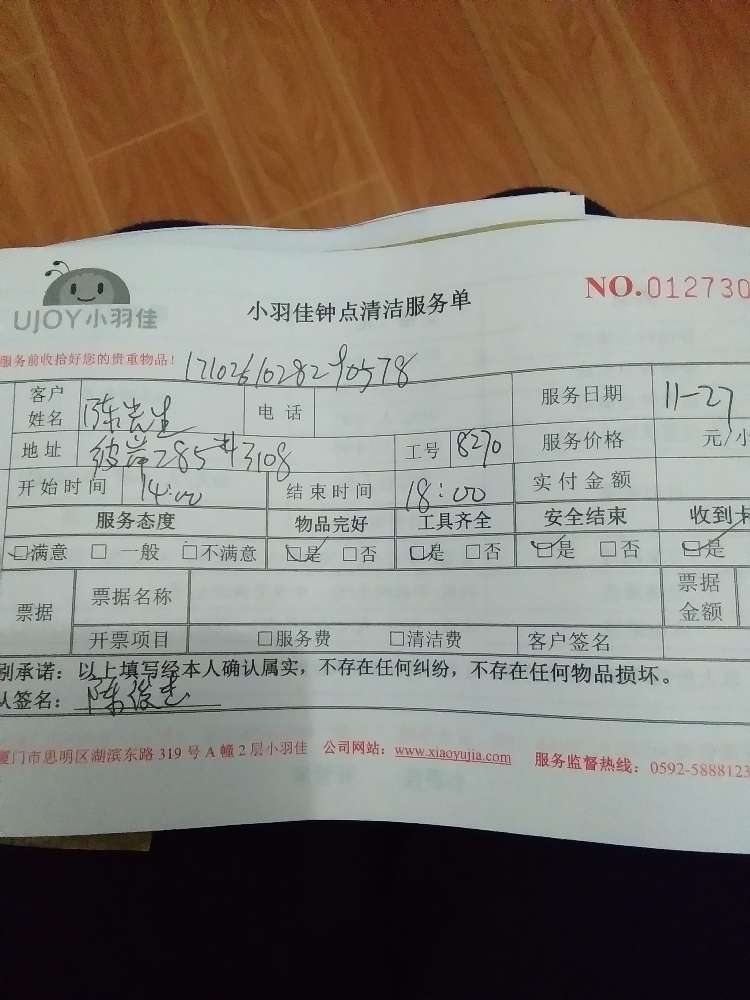 UJOY小羽佳
小羽佳钟点清洁服务单
NO.012730
服务前收拾好您的贵重物品!
客户姓名 陈先生 电话 服务日期 11-27
地址 彼岸285#3108 工号 8270 服务价格 元/小
开始时间 14:00 结束时间 18:00 实付金额
服务态度 物品完好 工具齐全 安全结束 收到卡
☑满意 □一般 □不满意 ☑是 □否 ☑是 □否 ☑是 □否 ☑是
票据 票据名称 票据金额
开票项目 □服务费 □清洁费 客户签名
别承诺：以上填写经本人确认属实，不存在任何纠纷，不存在任何物品损坏。
人签名：陈俊杰
厦门市思明区湖滨东路 319 号 A 幢 2 层小羽佳 公司网站：www.xiaoyujia.com 服务监督热线：0592-5888123